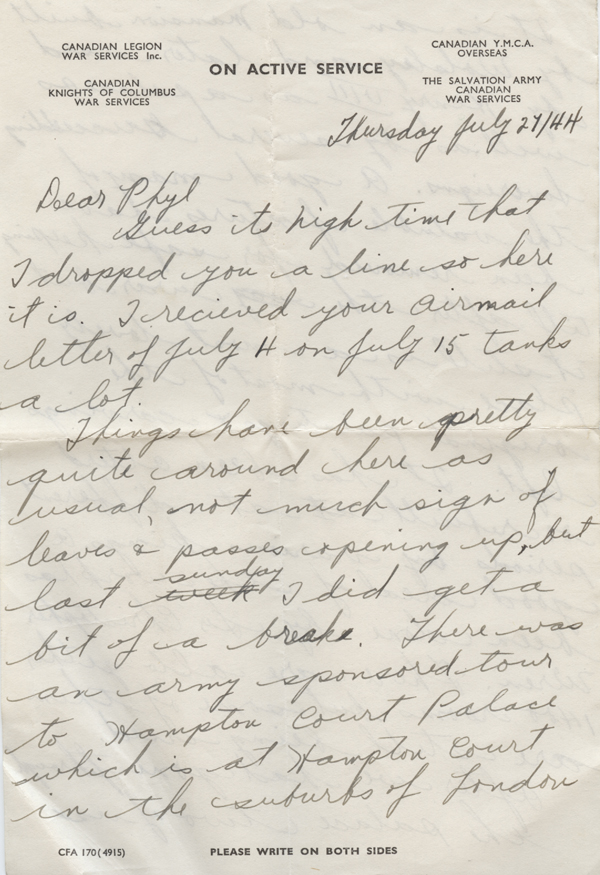 CANADIAN LEGION
WAR SERVICES Inc.
CANADIAN
KNIGHTS OF COLUMBUS
WAR SERVICES
ON ACTIVE SERVICE
CANADIAN Y.M.C.A.
OVERSEAS
THE SALVATION ARMY
CANADIAN
WAR SERVICES
Thursday July 27/44
Dear Phyl
Guess its high time that
I dropped you a line so here
it is. I recieved your airmail
letter of July 4 on July 15 tanks
a lot.
Things have been pretty
quite around here as
usual, not much sign of
leaves & passes opening up, but
sunday
last week I did get a
bit of a breake. There was
an army sponsored tour
to Hampton Court Palace
which is at Hampton Court
in the suburbs of London
CFA 170 (4915)
PLEASE WRITE ON BOTH SIDES